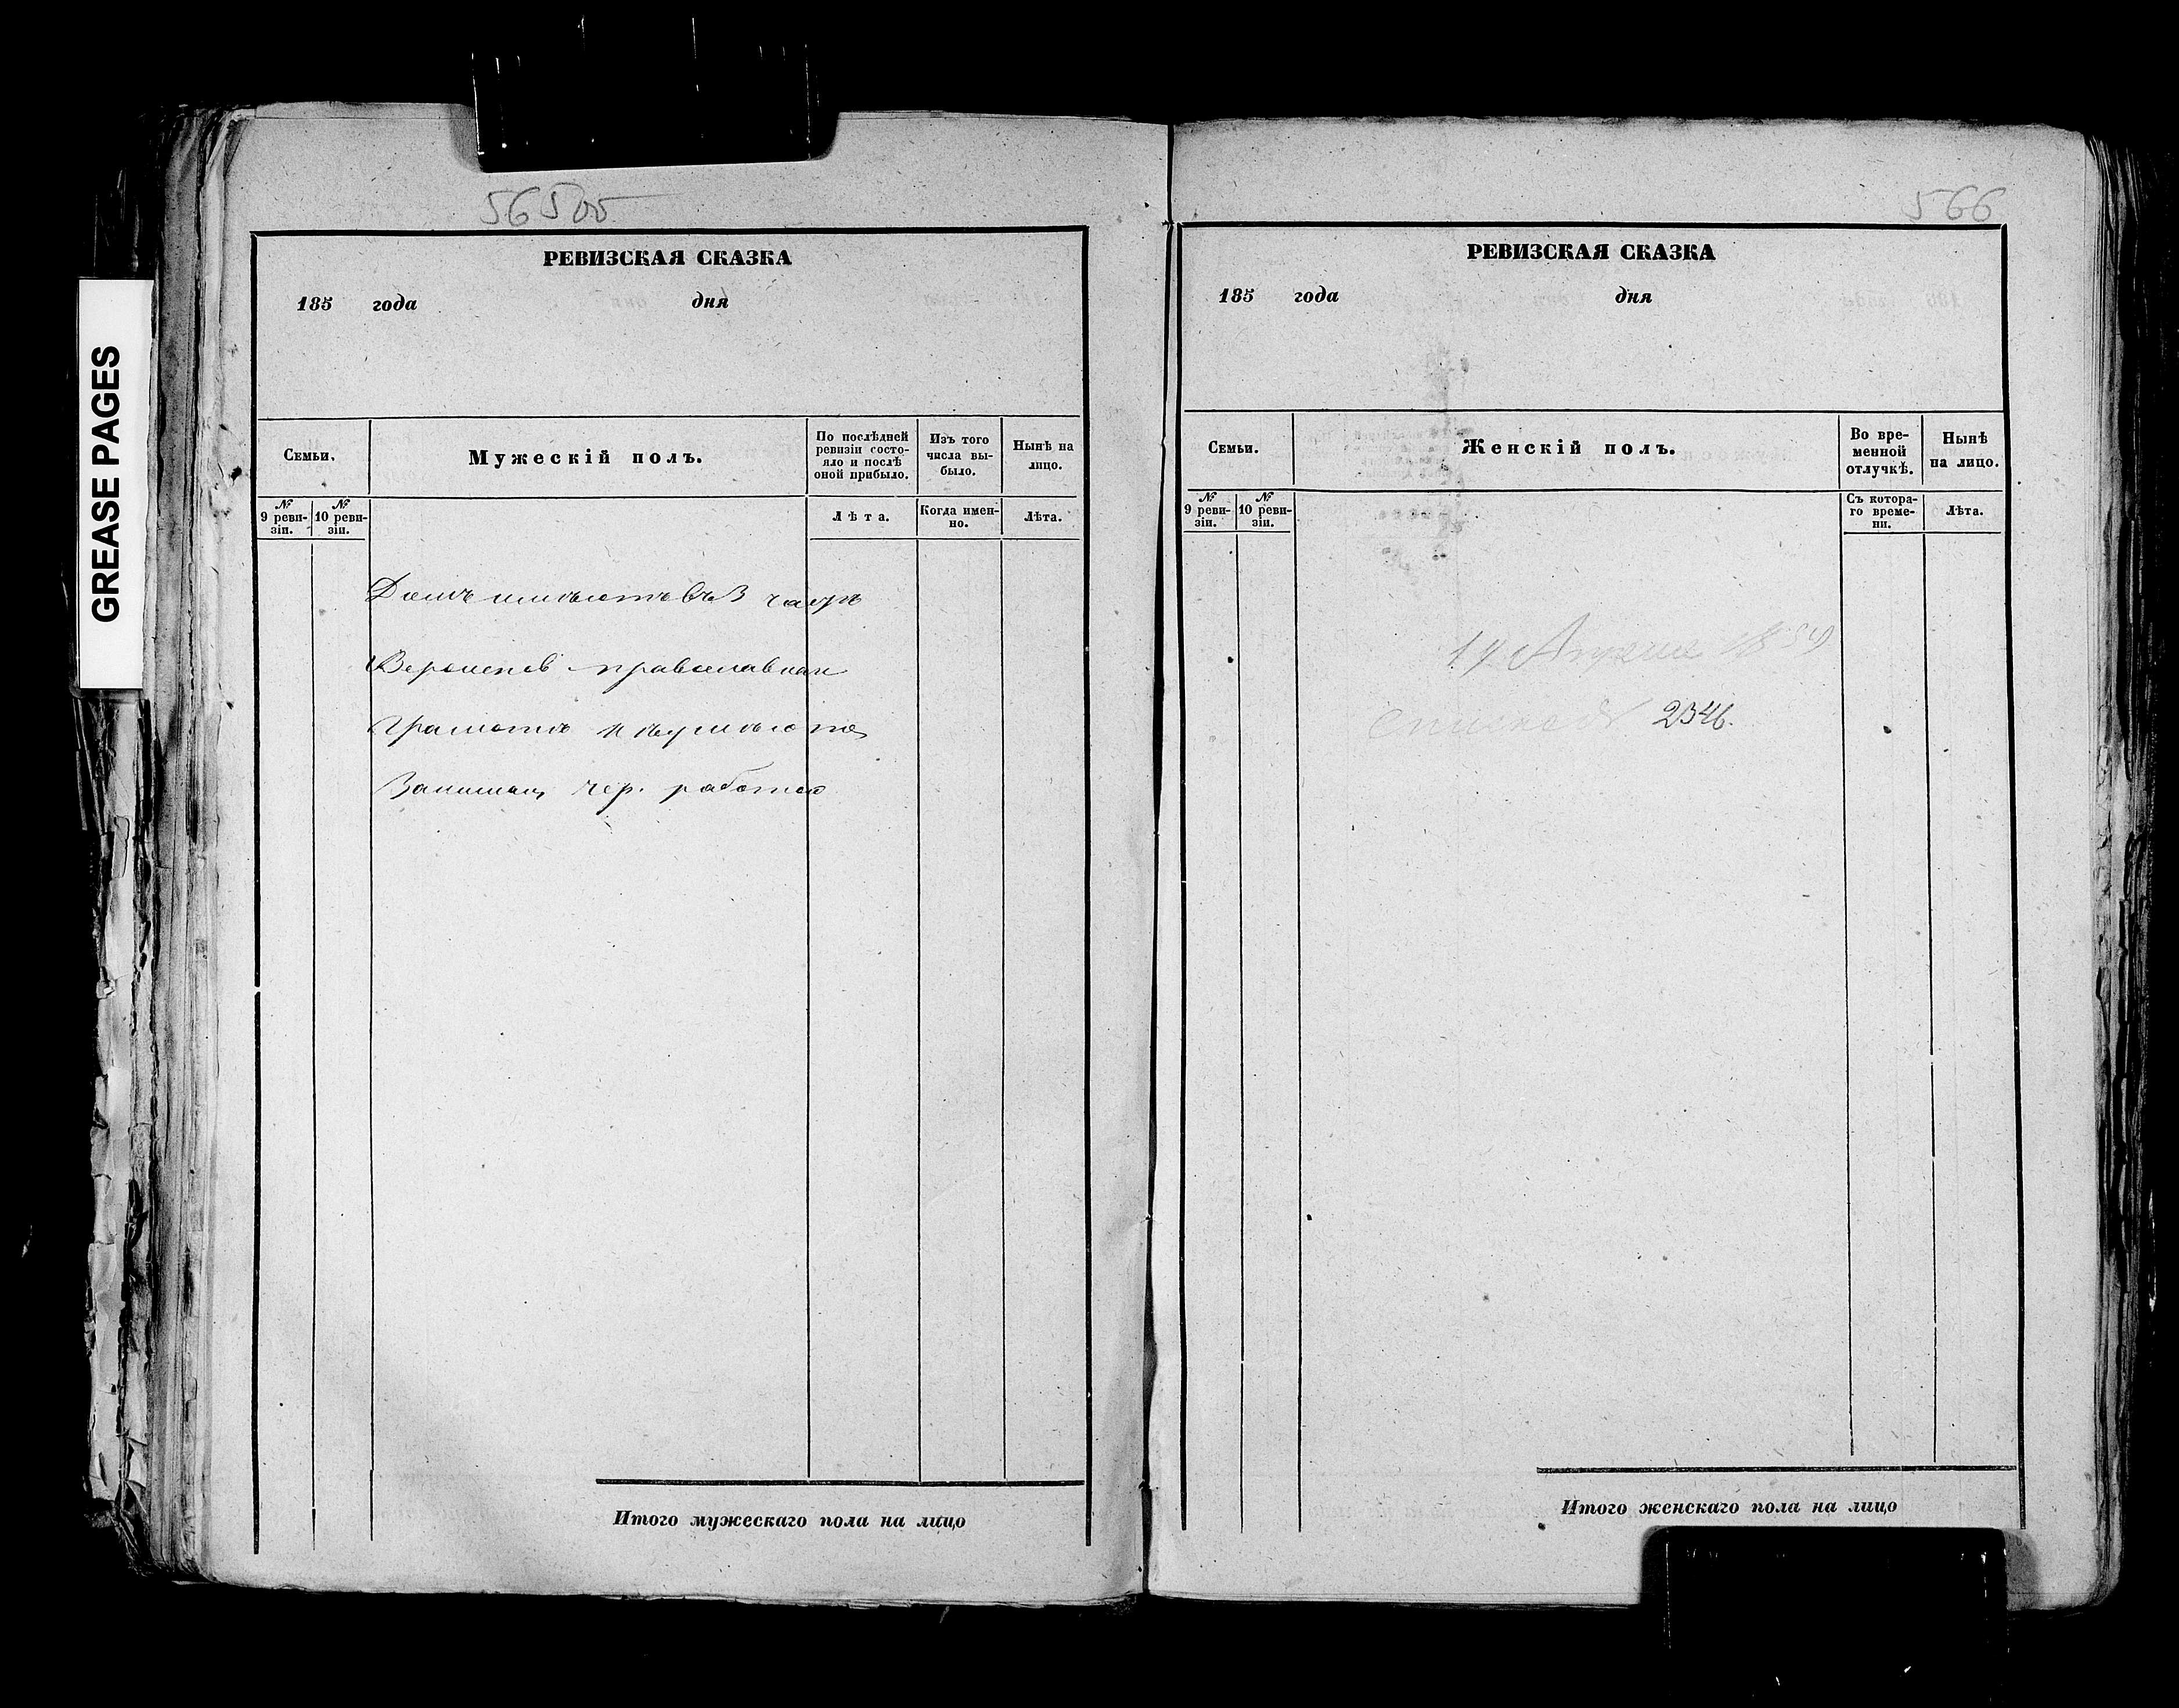 GREASE PAGES
565об
РЕВИЗСКАЯ СКАЗКА
185 года дня
Семьи.
Мужескій полъ.
По послѣдней ревизіи состо-
яло и послѣ
оной прибыло.
Изъ того
числа вы-
было.
Нынѣ на
лицо.
№
9 реви-
зіи.
№
10 реви-
зіи.
Лѣта.
Когда имен-
но.
Лѣта.
Домъ имѣютъ въ 3 части
Вероиспов православнаго
Грамотѣ не умѣютъ
Занимаются чер. работою
Итого мужескаго пола на лицо
566
РЕВИЗСКАЯ СКАЗКА
185 года дня
Семьи.
Женскій полъ.
Во вре-
менной
отлучкѣ.
Нынѣ
на лицо.
№
9 реви-
зіи.
№
10 реви-
зіи.
Съ котора-
го време-
ни.
Лѣта.
Апреля
2346.
Итого женскаго пола на лицо